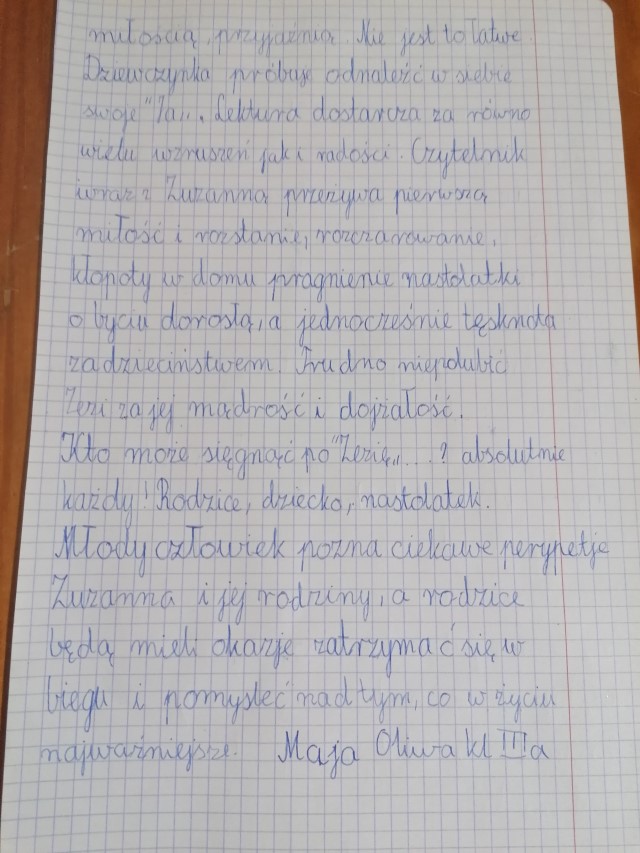 miłością, przyjaźnią. Nie jest to łatwe
Dziewczynka próbuje odnaleźć w siebie
swoje "Ja„. Lektura dostarcza za równo
wielu wzruszeń jak i radości. Czytelnik
wraz z Zuzanną przeżywa pierwszą
miłość i rozstanie, rozczarowanie,
kłopoty w domu pragnienie nastolatki
o byciu dorosłą, a jednocześnie tęsknota
za dzieciństwem. Trudno niepolubić
Zezi za jej mądrość i dojrzałość.
Kto może sięgnąć po "Zezię„...? absolutnie
każdy! Rodzice, dziecko, nastolatek.
Młody człowiek pozna ciekawe perypetje
Zuzanna i jej rodziny, a rodzice
będą mieli okazje zatrzymać się w
biegu i pomysleć nad tym, co w życiu
najważniejsze. Maja Oliwa kl IIIa